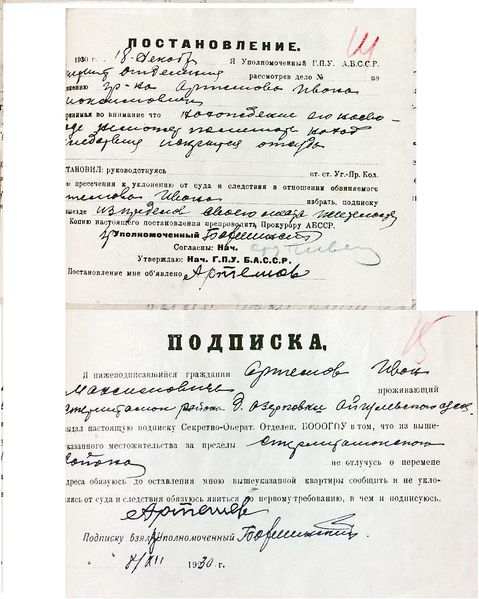 III
ПОСТАНОВЛЕНИЕ.
1930 г. 18 декабр Я Уполномоченный Г.П.У А.Б.С.С.Р.
отделения рассмотрев дело № по
нению гр-на Артемова Ивана
Максимовича
ринимая во внимание что нахождение его на сво-
боде может
следствия
СТАНОВИЛ: руководствуясь ст. ст. Уг.-Пр. Код.
ю пресечения к уклонению от суда и следствия в отношении обвиняемого
ртемова Ивана избрать, подписку
выезде из пределов своего места жительства
Копию настоящего постановления препроводить Прокурору АБССР.
Уполномоченный
Согласны: Нач.
Утверждаю: Нач. Г.П.У Б.А.С.С.Р.
Постановление мне об'явлено Артемов
15
ПОДПИСКА.
Я нижеподписавшийся гражданин Артемов Иван
Максимович проживающий
Стерлитамак района д. Озерковки Айгулевского
ыдал настоящую подписку Секретно-Операт. Отделен. БОООГПУ в том, что из выше-
казанного местожительства за пределы Стерлитамакского
района не отлучусь о перемене
дреса обязуюсь до оставления мною вышеуказанной квартиры сообщить и не укло-
няясь от суда и следствия обязуюсь явиться по первому требованию, в чем и подписуюсь.
Артемов
Подписку взял Уполномоченный
XII 1930 г.